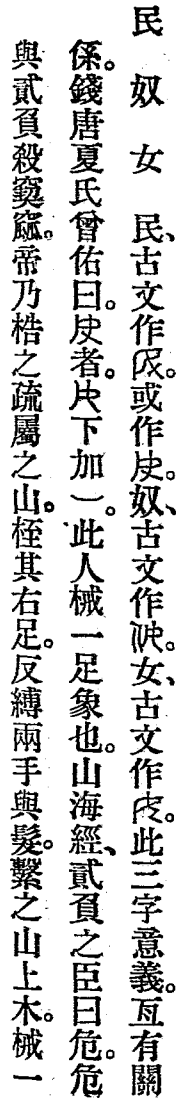 民 奴 女　民、古文作。或作。奴、古文作。女、古文作。此三字意義。亙有關
係。錢唐夏氏曾佑曰。者。下加一。此人械一足象也。山海經、貳負之臣曰危。危
與貳負殺窫窳。帝乃梏之疏屬之山。桎其右足。反縛兩手與髮。繫之山上木。械一